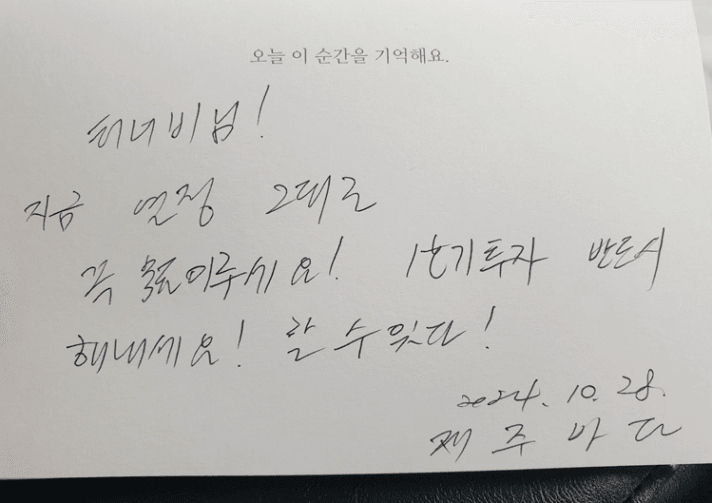 오늘 이 순간을 기억해요.
터너비님!
지금 열정 그대로
꼭 목표 이루세요! 1호기투자 반드시
해내세요! 할 수 있다!
2024. 10. 28.
제주바다